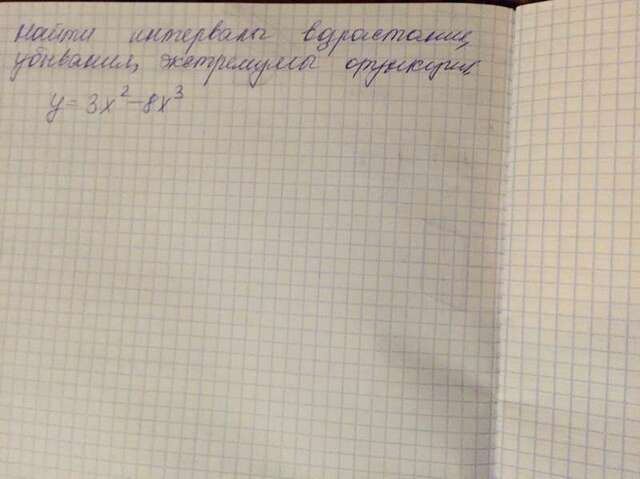 Найти интервалы вдрастания,
убывания, экстремумы функции
y=3x²-8x³